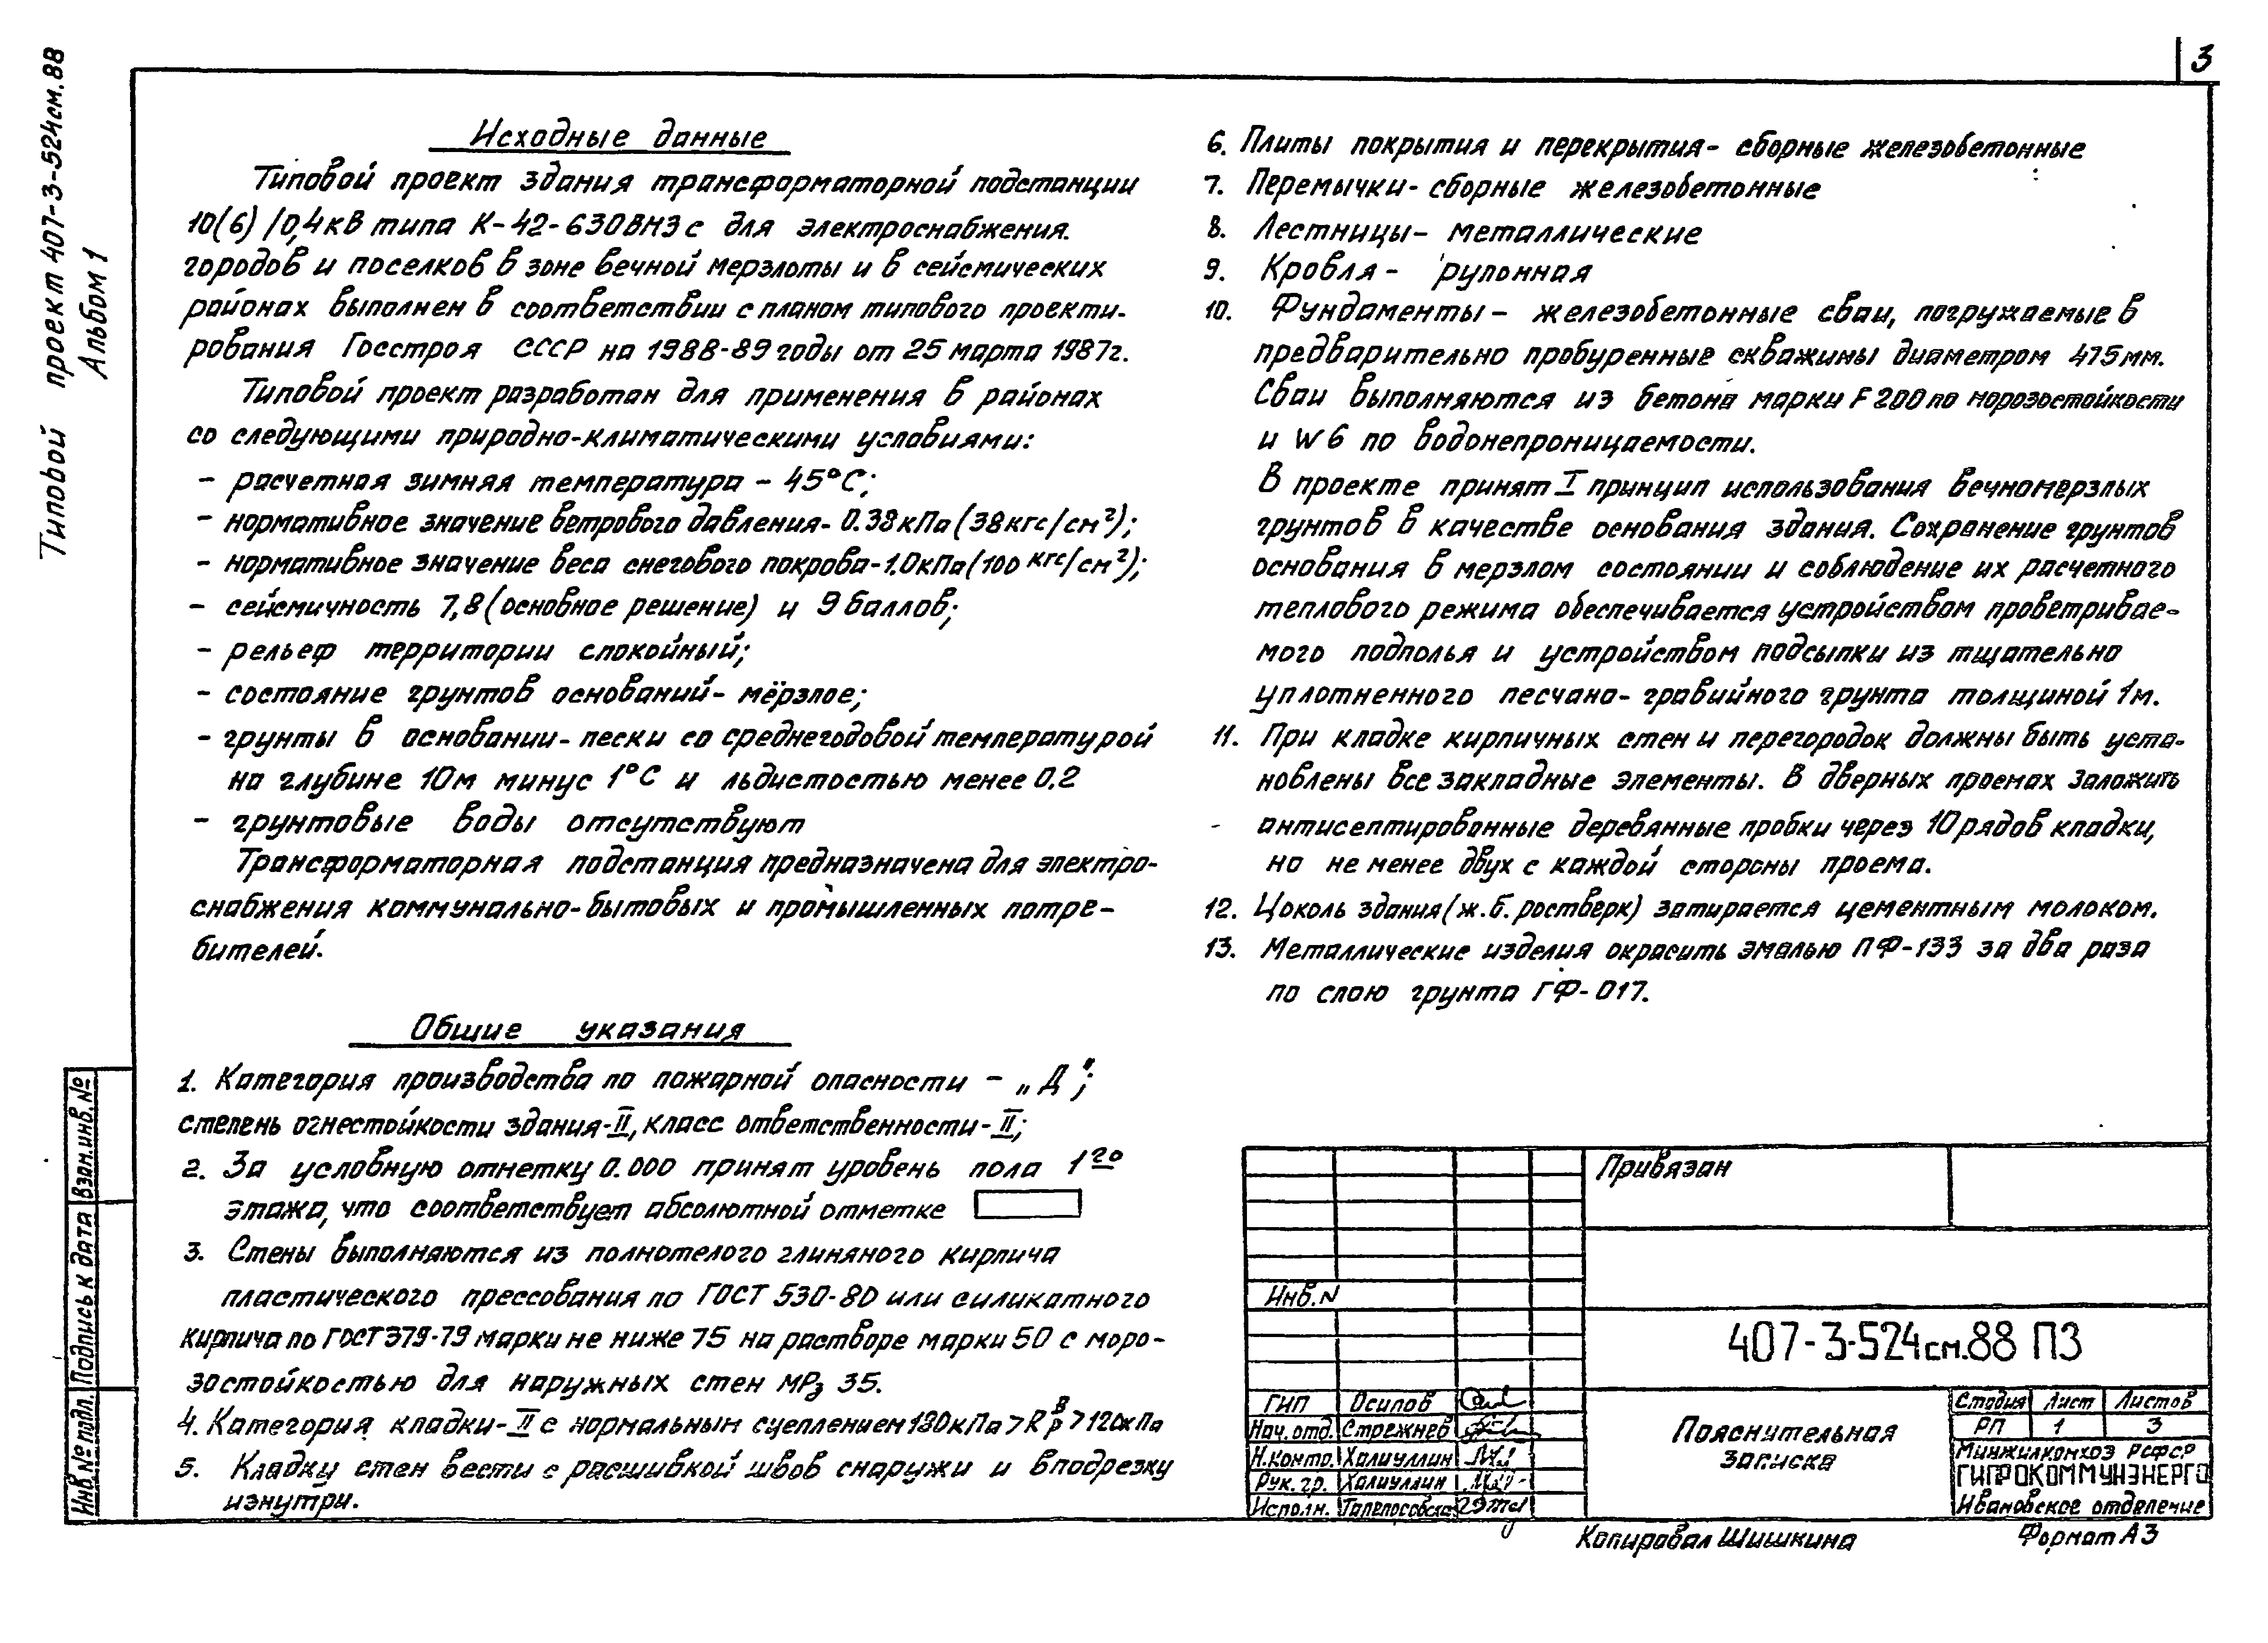 3
Типовой проект 407-3-524см.88
Альбом 1
Исходные данные
Типовой проект здания трансформаторной подстанции
10(6)/0,4кВ типа К-42-630ВМЗс для электроснабжения.
городов и поселков в зоне вечной мерзлоты и в сейсмических
районах выполнен в соответствии с планом типового проекти-
рования Госстроя СССР на 1988-89годы от 25 марта 1987г.
Типовой проект разработан для применения в районах
со следующими природно-климатическими условиями:
- расчетная зимняя температура - 45°С;
- нормативное значение ветрового давления- 0.38кПа (38кгс/см²);
- нормативное значение веса снегового покрова-1.0кПа(100 кгс/см²);
- сейсмичность 7,8 (основное решение) и 9 баллов;
- рельеф территории спокойный;
- состояние грунтов оснований- мёрзлое;
- грунты в основании- пески со среднегодовой температурой
на глубине 10м минус 1°С и льдистостью менее 0.2
- грунтовые воды отсутствуют
Трансформаторная подстанция предназначена для электро-
снабжения коммунально-бытовых и промышленных потре-
бителей.
Общие указания
1. Категория производства по пожарной опасности - „Д";
степень огнестойкости здания-II, класс ответственности-II;
2. За условную отметку 0.000 принят уровень пола 1го
этажа, что соответствует абсолютной отметке
3. Стены выполняются из полнотелого глиняного кирпича
пластического прессования по ГОСТ 530-80 или силикатного
кирпича по ГОСТ 379-79 марки не ниже 75 на растворе марки 50 с моро-
зостойкостью для наружных стен МРз 35.
4. Категория кладки-II с нормальным сцеплением 180кПа>Rрв>120кПа
5. Кладку стен вести с расшивкой швов снаружи и вподрезку
изнутри.
6. Плиты покрытия и перекрытия- сборные железобетонные
7. Перемычки- сборные железобетонные
8. Лестницы- металлические
9. Кровля- рулонная
10. Фундаменты- железобетонные сваи, погружаемые в
предварительно пробуренные скважины диаметром 475мм.
Сваи выполняются из бетона марки F200 по морозостойкости
и W6 по водонепроницаемости.
В проекте принят I принцип использования вечномерзлых
грунтов в качестве основания здания. Сохранение грунтов
основания в мерзлом состоянии и соблюдение их расчетного
теплового режима обеспечивается устройством проветривае-
мого подполья и устройством подсыпки из тщательно
уплотненного песчано-гравийного грунта толщиной 1м.
11. При кладке кирпичных стен и перегородок должны быть уста-
новлены все закладные элементы. В дверных проемах заложить
антисептированные деревянные пробки через 10 рядов кладки,
но не менее двух с каждой стороны проема.
12. Цоколь здания (ж.б. ростверк) затирается цементным молоком.
13. Металлические изделия окрасить эмалью ПФ-133 за два раза
по слою грунта ГФ-017.
Взам.инв.№
Подпись к дата
Инв.№ подл.
Привязан
Инв.N
407-3-524см.88 ПЗ
ГИП Осипов
Нач.отд. Стрежнев
Н.контр. Халиуллин
Рук.гр. Халиуллин
Исполн.
Пояснительная
записка
Стадия Лист Листов
РП 1 3
Минжилкомхоз РСФСР
ГИПРОКОММУНЭНЕРГО
Ивановское отделение
Копировал Шишкина
Формат А3